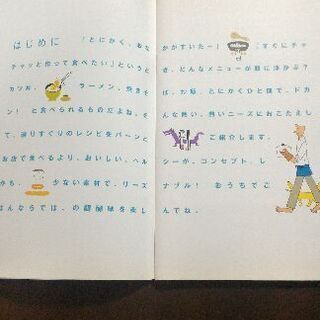 はじめに 「とにかく、おなかがすいたー!」「すぐにチャ
チャッと作って食べたい」というとき、どんなメニューが頭に浮かぶ?
カツ丼、 ラーメン、焼きそば。お昼、とにかくひと皿で、ドカ
ン! と食べられるものだよね。そんな熱い、熱いニーズにおこたえし
て、選りすぐりのレシピをバーンと ご紹介します。
お店で食べるより、おいしい、ヘルシーが、コンセプト。し
かも、 少ない素材で、リーズナブル! おうちでご
はんならでは、の醍醐味を楽しんでね。